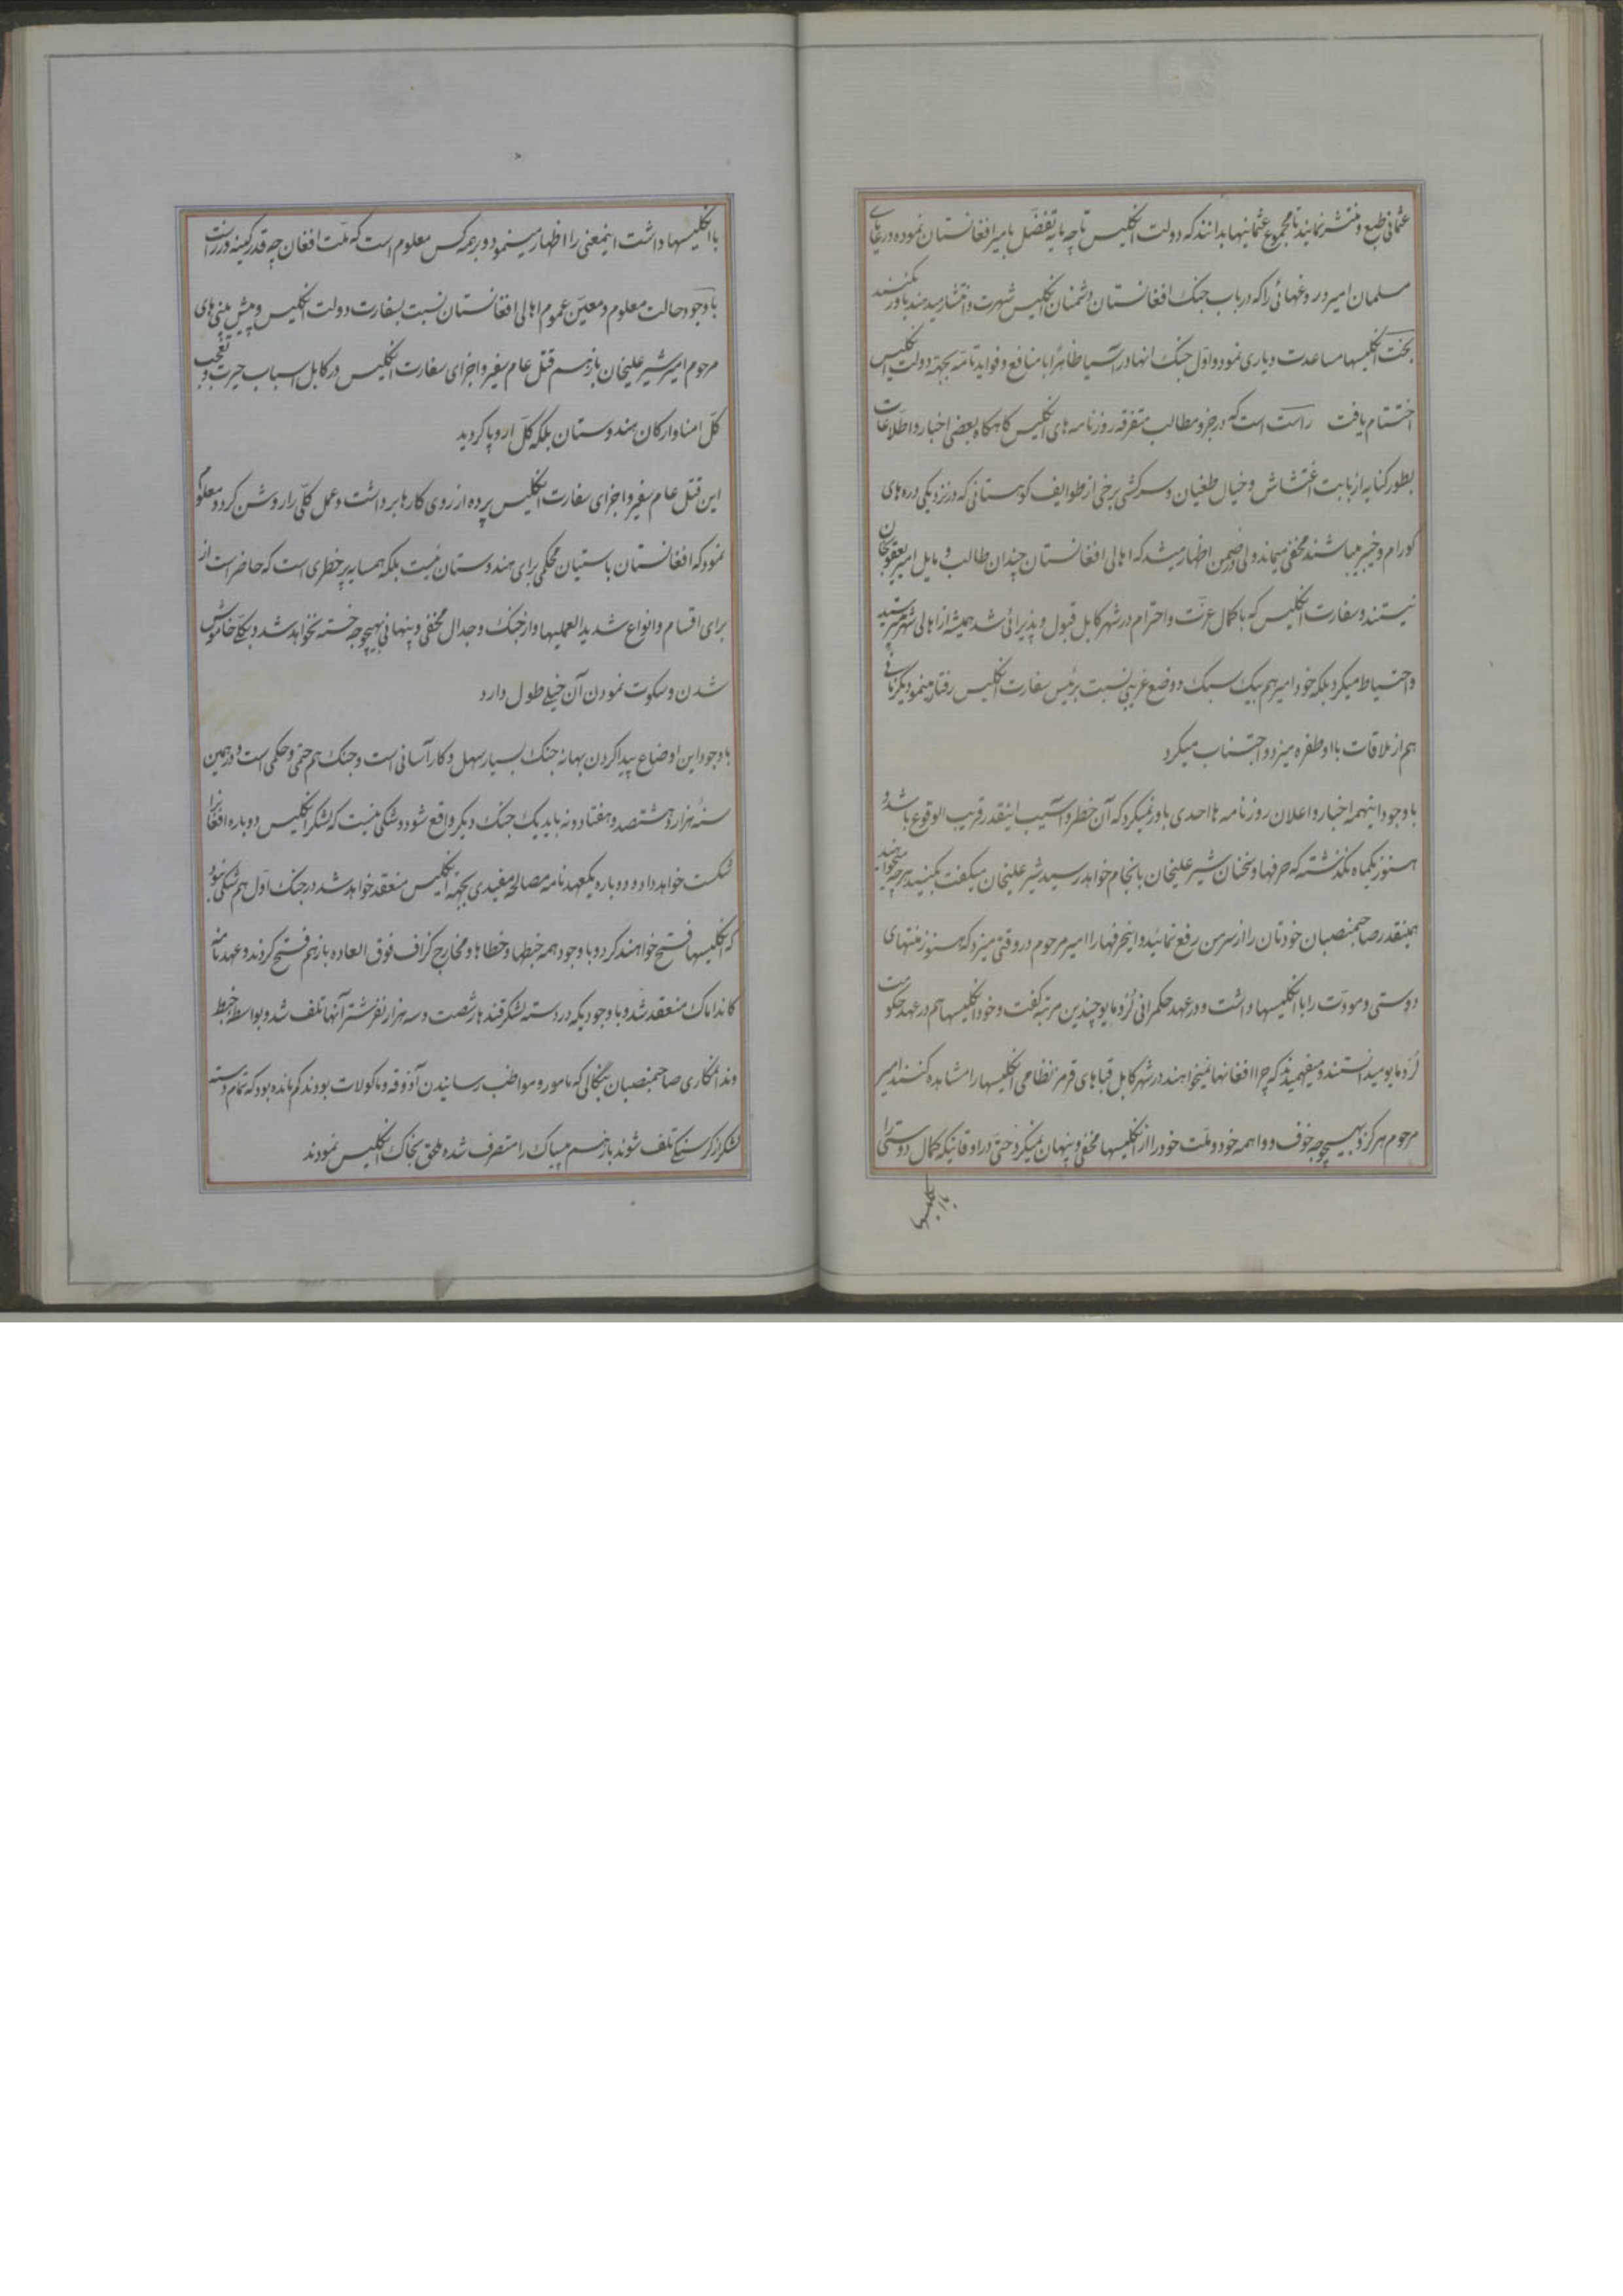 عثمانی طبع و منتشر نمایند تا مجموع عثمانیها بدانند که دولت انکلیس تا چه پایه تفضّل بامیر افغانستان نموده و رعایای
مسلمان امیر دروغهائی را که در باب جنک افغانستان دشمنان انکلیس شهرت و انتشار میدهند باور نکنند
بخت انکلیسها مساعدت و یاری نمود و اوّل جنک انها در آسیا ظاهرًا با منافع و فواید تامّه بجهة دولت انکلیس
اختتام یافت راست است که در جزو مطالب متفرقه روزنامه های انکلیس کاهکاه بعضی اخبار و اطلّاعات
بطور کنایه از بابت اغتشاش و خیال طغیان و سرکشی برخی از طوایف کوهستانی که در نزدیکی دره های
کورام و خیبر میباشند مخفی میماند ولی در ضمن اظهار میشد که اهالی افغانستان چندان طالب و مایل امیر یعقوبخان
نیستند و سفارت انکلیس که با کمال عزّت و احترام در شهر کابل قبول و پذیرائی شد همیشه از اهالی شهر میترسید
و احتیاط میکرد بلکه خود امیر هم بیک سبک و وضع غریبی نسبت برئیس سفارت انکلیس رفتار مینمود یکزمانی
هم از ملاقات با او طفره میزد و اجتناب میکرد
با وجود اینهمه اخبار و اعلان روزنامه ها احدی باور نمیکرد که آن خطر و آسیب اینقدر قریب الوقوع باشد و
هنوز یکماه نکذشته که حرفها و سخنان شیر علیخان بانجام خواهد رسید شیر علیخان میکفت بکنید هر چه میخواهید
همینقدر صاحبمنصبان خودتان را از سر من رفع نمائید و اینحرفها را امیر مرحوم در وقتی میزد که هنوز منتهای
دوستی و مودّت را با انکلیسها داشت و در عهد حکمرانی لُرد مایو چندین مرتبه کفت و خود انکلیسها هم در عهد حکومت
لُرد مایو میدانستند و میفهمیدند که چرا افغانها نمیخواهند در شهر کابل قباهای قرمز نظامی انکلیسها را مشاهده کنند امیر
مرحوم هرکز و بهیچوجه خوف و واهمه خود و ملّت خود را از انکلیسها مخفی و پنهان نمیکرد حتی در اوقاتیکه کمال دوستی را
با انکلیسها
با انکلیسها داشت اینمعنی را اظهار مینمود و بر همه کس معلوم است که ملّت افغان چه قدر کینه ورزاست
با وجود حالت معلوم و معیّن عموم اهالی افغانستان نسبت بسفارت دولت انکلیس و پیش بینی های
مرحوم امیر شیر علیخان باز هم قتل عام سفیر و اجزای سفارت انکلیس در کابل اسباب حیرت و تعجّب
کلّ امنا و ارکان هندوستان بلکه کلّ اروپا کردید
این قتل عام سفیر و اجزای سفارت انکلیس پرده از روی کارها برداشت و عمل کلّی را روشن کرد و معلوم
نمود که افغانستان باستیان محکمی برای هندوستان نیست بلکه همسایه پر خطری است که حاضر است از
برای اقسام و انواع شدید العملیها و از جنک و جدال مخفی و پنهانی بهیچوجه خسته نخواهد شد و بکلّی خاموش
شدن و سکوت نمودن آن خیلی طول دارد
با وجود این اوضاع پیدا کردن بهانه جنک بسیار سهل و کار آسانی است و جنک هم حتمی و حکمی است و در همین
سنهٔ هزار و هشتصد و هفتاد و نه باید یک جنک دیکر واقع شود و شکی نیست که لشکر انکلیس دوباره افغان را
شکست خواهد داد و دوباره یکعهدنامه مصالحه مفیدی بجهة انکلیس منعقد خواهد شد در جنک اوّل هم شکی نبود
که انکلیسها فتح خواهند کرد و با وجود همه خبطها و خطاها و مخارج کزاف فوق العاده باز هم فتح کردند و عهدنامه
کانداماک منعقد شد و با وجودیکه در دسته لشکر قندهار شصت و سه هزار نفر شتر آنها تلف شد و بواسطه خبط
و ندانمکاری صاحبمنصبان بنکالی که مامور و مواظب رسانیدن آذوقه و ماکولات بودند کم مانده بود که تمام دسته
لشکر از کرسنکی تلف شوند باز هم پیساک را متصرف شده ملحق بخاک انکلیس نمودند